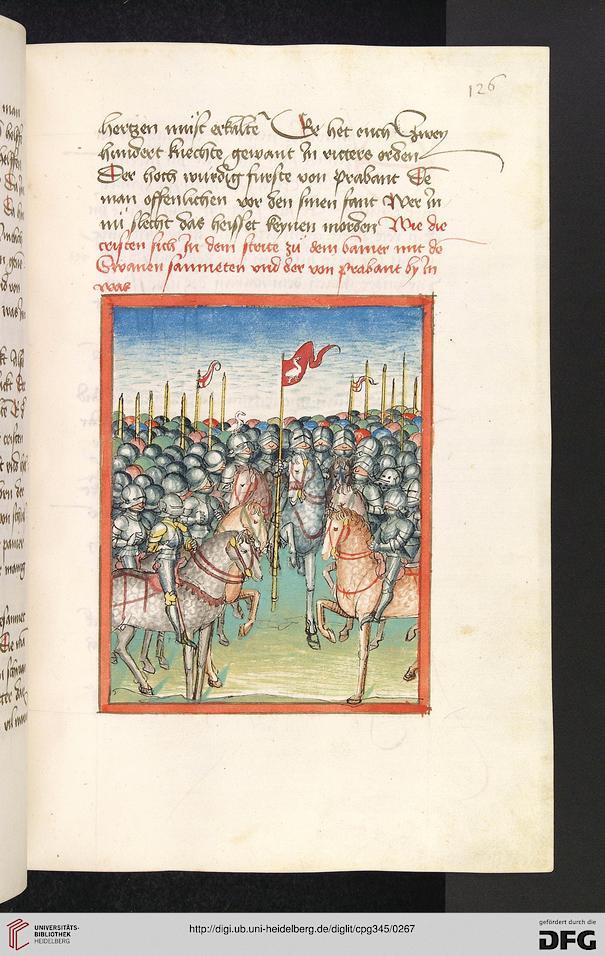 126
hertzen must erkalte Er het ouch Zwey
hundert knechte gewant In ritters orden
Der hoch wurdig furste von Prabant Te
man offenlichen vor den sinen fant Wer in
nu slecht das heisset keynen morden Wie die
cristen sich In dem strite zu dem baner mit de
Swanen sammeten vnd der von prabant by In
was
UNIVERSITÄTS-
BIBLIOTHEK
HEIDELBERG
http://digi.ub.uni-heidelberg.de/diglit/cpg345/0267
gefördert durch die
DFG